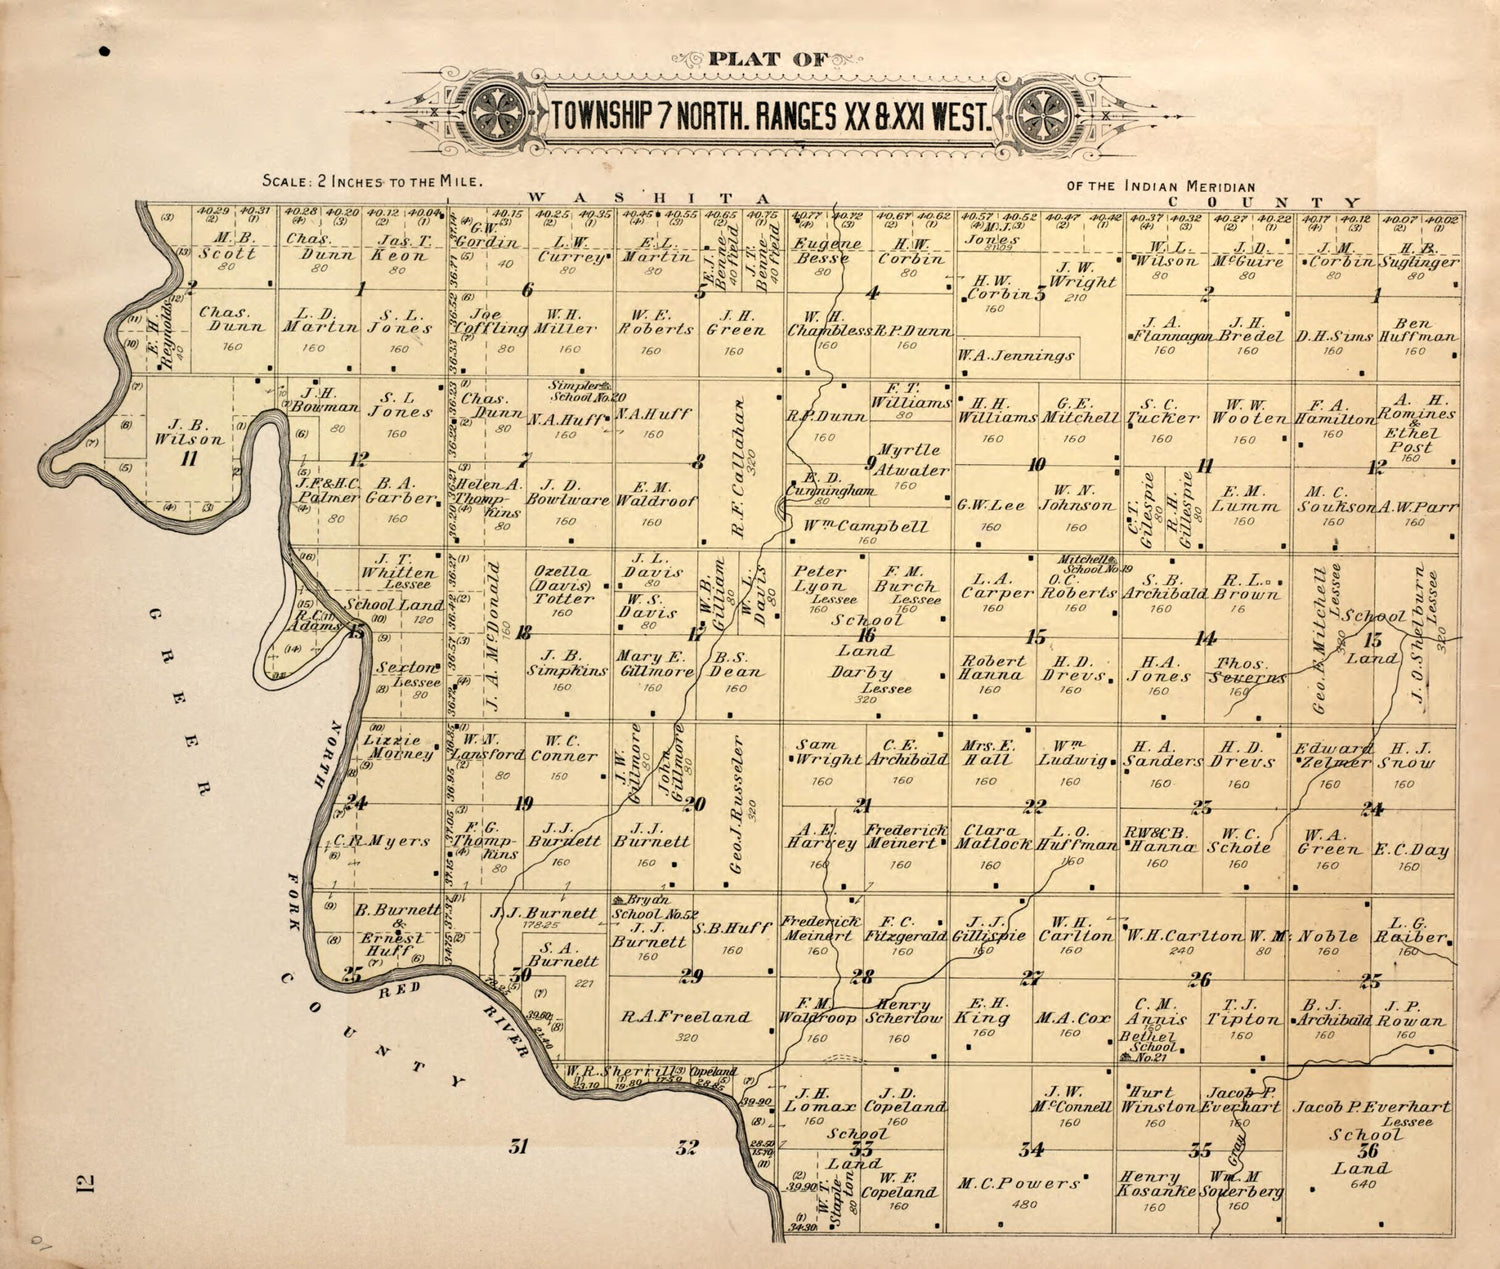 PLAT OF
TOWNSHIP 7 NORTH. RANGES XX & XXI WEST.
SCALE: 2 INCHES TO THE MILE.
OF THE INDIAN MERIDIAN
WASHITA COUNTY
40.29 40.31 40.28 40.20 40.12 40.04 40.15 40.25 40.35 40.45 40.55 40.65 40.75 40.77 40.72 40.67 40.62 40.57 40.52 40.47 40.42 40.37 40.32 40.27 40.22 40.17 40.12 40.07 40.02
M. B. Scott 80
Chas. Dunn 80
Jas. T. Keon 80
G.W. Gordin 40
L.W. Currey 80
E.L. Martin 80
E.J. Bennefield 40
J.T. Bennefield 40
Eugene Besse 80
H.W. Corbin 80
M.J. Jones
H.W. Corbin 160
J.W. Wright 210
W.L. Wilson 80
J.D. McGuire 80
J.M. Corbin 80
H.B. Suglinger 80
2 1 6 5 4 3 2 1
E. H. Reynolds 40
Chas. Dunn 160
L.D. Martin 160
S.L. Jones 160
Joe Coffling 80
W.H. Miller 160
W.E. Roberts 160
J.H. Green 160
W.H. Chambless 160
R.P. Dunn 160
W.A. Jennings
J.A. Flannagan 160
J.H. Bredel 160
D.H. Sims 160
Ben Huffman 160
J.B. Wilson
J.H. Bowman 80
S.L Jones 160
Chas. Dunn 80
Simpler School No. 20
N.A. Huff 160
N.A. Huff 160
R.F. Callahan 320
R.P. Dunn 160
F.T. Williams 80
H.H. Williams 160
G.E. Mitchell 160
S.C. Tucker 160
W.W. Wooten 160
F.A. Hamilton 160
A. H. Romines & Ethel Post 160
11 12 7 8 9 10 11 12
J.F. & H.C. Palmer 80
B.A. Garber 160
Helen A. Thompkins 80
J.D. Bowlware 160
E.M. Waldroof 160
E.D. Cunningham 80
Myrtle Atwater 160
Wm Campbell 160
G.W. Lee 160
W.N. Johnson 160
C.T. Gilespie 80
R.H. Gillespie 80
E.M. Lumm 160
M.C. Soukson 160
A.W. Parr 160
J.T. Whitten Lessee
School Land 120
R.C. Adams
J.A. McDonald 160
Ozella (Davis) Totter 160
J.L. Davis 80
W.S. Davis 80
W.B. Gilliam 80
W.L. Davis 80
Peter Lyon Lessee 160
F.M. Burch Lessee 160
School Land
L.A. Carper 160
Mitchell School No. 19
O.C. Roberts 160
S.B. Archibald 160
R.L. Brown 16
Geo. E. Mitchell Lessee 320
School Land
J.O. Shelburn Lessee 320
13 18 17 16 15 14 13
Sexton Lessee 80
J.B. Simpkins 160
Mary E. Gillmore 160
B.S. Dean 160
Darby Lessee 320
Robert Hanna 160
H.D. Drevs 160
H.A. Jones 160
Thos. Severns 160
Lizzie Morney
W.N. Lansford 80
W.C. Conner 160
J.W. Gillmore 80
John Gillmore 80
Geo. J. Russeler 320
Sam Wright 160
C.E. Archibald 160
Mrs. E. Hall 160
Wm Ludwig 160
H.A. Sanders 160
H.D. Drevs 160
Edward Zelmer 160
H.J. Snow 160
24 19 20 21 22 23 24
C.R. Myers
F.G. Thompkins 80
J.J. Burnett 160
J.J. Burnett 160
A.E. Harvey 160
Frederick Meinert 160
Clara Matlock 160
L.O. Huffman 160
R.W. & C.B. Hanna 160
W.C. Schote 160
W.A. Green 160
E.C. Day 160
B. Burnett & Ernest Huff
J.J. Burnett 178.25
S.A. Burnett 221
Bryan School No. 52
J.J. Burnett 160
S.B. Huff 160
Frederick Meinart 160
F.C. Fitzgerald 160
J.J. Gillispie 160
W.H. Carlton 160
W.H. Carlton 240
W. Mc 80
Noble 160
L.G. Raiber 160
25 30 29 28 27 26 25
R.A. Freeland 320
F.M. Waldroop 160
Henry Scherlow 160
E.H. King 160
M.A. Cox 160
C.M. Annis 160
Bethel School No. 21
T.J. Tipton 160
B.J. Archibald 160
J.P. Rowan 160
W.R. Sherrill
Copeland
J.H. Lomax 160
J.D. Copeland 160
School Land
J.W. McConnell 160
Hurt Winston 160
Jacob P. Everhart 160
Jacob P. Everhart Lessee
School Land 640
31 32 33 34 35 36
W.T. Stapleton 80
W.F. Copeland 160
M.C. Powers 480
Henry Kosanke 160
Wm. M Souerberg 160
Gray
GREER COUNTY
NORTH FORK RED RIVER
12